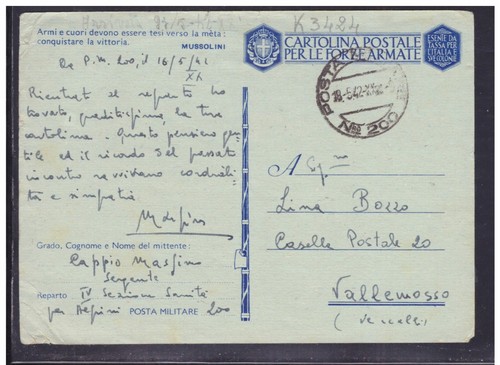 K 3424
Armi e cuori devono essere tesi verso la mèta:
conquistare la vittoria.
MUSSOLINI
Da P.M. 200, il 16/5/42
XX
Rientrato al reparto ho
trovato, graditissima, la tua
cartolina. Questo pensiero gen=
tile ed il ricordo del passato
incontro ravvivano cordiali=
tà e simpatia
Massimo
Grado, Cognome e Nome del mittente:
Cappio Massimo
Sergente
Reparto IV Sezione Sanità
per Alpini POSTA MILITARE 200
CARTOLINA POSTALE
PER LE FORZE ARMATE
ESENTE DA
TASSA PER
L'ITALIA E
POSTA
18.5.42
Nro 200
A
Lina Bozzo
Casella Postale 20
Vallemosso
(Vercelli)